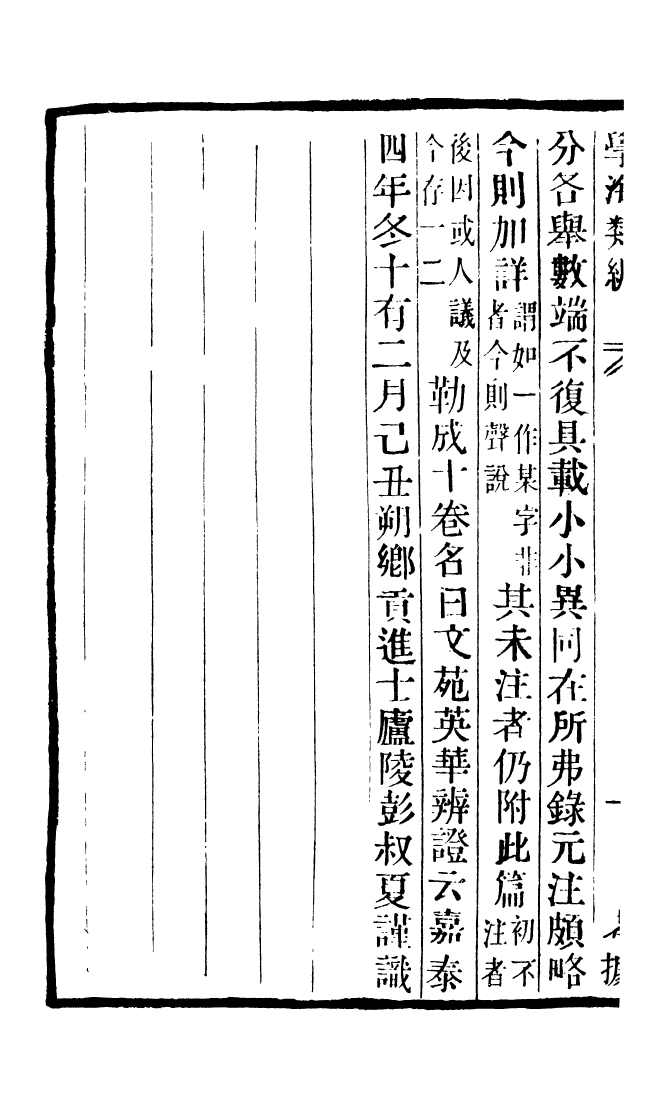 學海類編 一
分各舉數端不復具載小小異同在所弗錄元注頗略
今則加詳謂如一作某字非者今則聲說其未注者仍附此篇初不注者
後因或人議及今存一二勒成十卷名曰文苑英華辨證云嘉泰
四年冬十有二月己丑朔鄉貢進士廬陵彭叔夏謹識